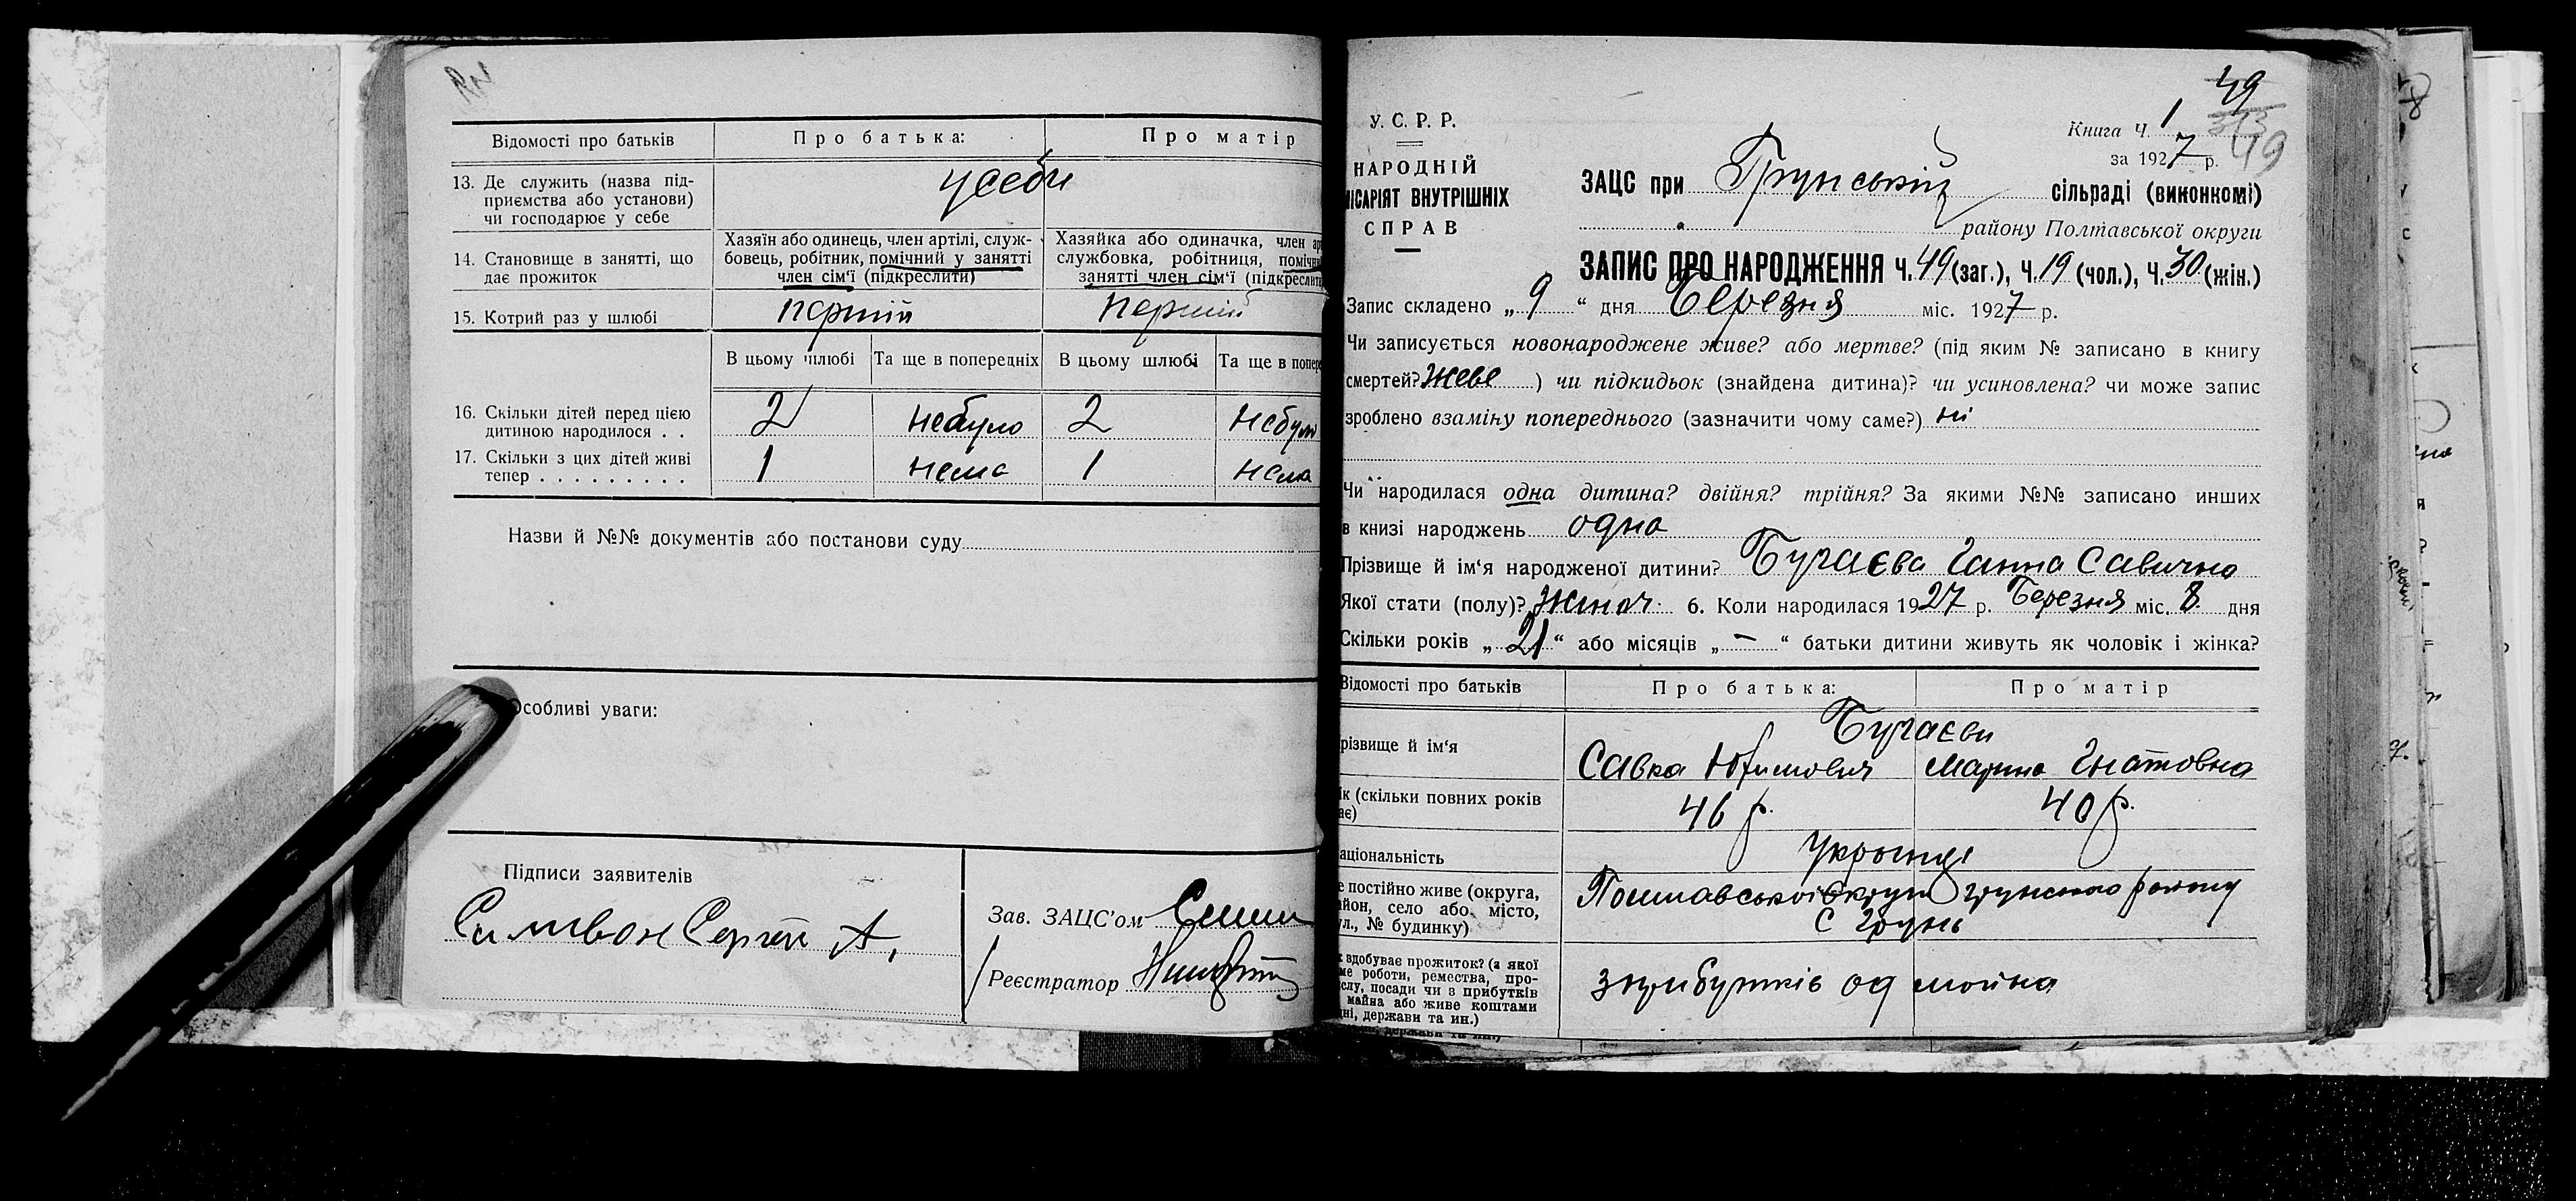 Відомості про батьків
Про батька:
Про матір
13. Де служить (назва під-
приємства або установи)
чи господарює у себе
у себе
14. Становище в занятті, що
дає прожиток
Хазяїн або одинець, член артілі, служ-
бовець, робітник, помічний у занятті
член сім'ї (підкреслити)
Хазяйка або одиначка, член
службовка, робітниця,
занятті член сім'ї
15. Котрий раз у шлюбі
першій
першій
В цьому шлюбі
Та ще в попередніх
В цьому шлюбі
Та ще в
16. Скільки дітей перед цією
дитиною народилося . .
2
небуло
2
небуло
17. Скільки з цих дітей живі
тепер . . . . . . . . .
1
нема
1
нема
Назви й №№ документів або постанови суду
Особливі уваги:
Підписи заявителів
Сергей А,
Зав. ЗАЦС'ом
Реєстратор
49
Книга Ч. 1
за 1927 р.
49
У. С. Р. Р.
НАРОДНІЙ
ВНУТРІШНІХ
СПРАВ
ЗАЦС при Грунській сільраді (виконкомі)
району Полтавської округи
ЗАПИС ПРО НАРОДЖЕННЯ Ч. 49 (заг.), Ч. 19 (чол.), Ч. 30 (жін.)
Запис складено „ 9 “ дня Березня міс. 1927 р.
Чи записується новонароджене живе? або мертве? (під яким № записано в книгу
смертей? Живе ) чи підкидьок (знайдена дитина)? чи усиновлена? чи може запис
зроблено взаміну попереднього (зазначити чому саме?) ні
Чи народилася одна дитина? двійня? трійня? За якими №№ записано инших
в книзі народжень одна
Прізвище й ім'я народженої дитини? Бугаєва Ганна Савична
Якої стати (полу)? Жіноч. 6. Коли народилася 1927 р. Березня міс. 8 дня
Скільки років „ 21 “ або місяців „ — “ батьки дитини живуть як чоловік і жінка?
Відомості про батьків
Про батька:
Про матір
Бугаєви
ім'я
Савка Юхимович
Марина Гнатовна
(скільки повних років
46 р.
40 р.
Украінці
постійно живе (округа,
село або місто,
№ будинку)
Полтавської округи Грунського району
с Грунь
вдобуває прожиток? (з якої
роботи, ремества, про-
посади чи з прибутків
майна або живе коштами
держави та ин.)
з прибутків од майна